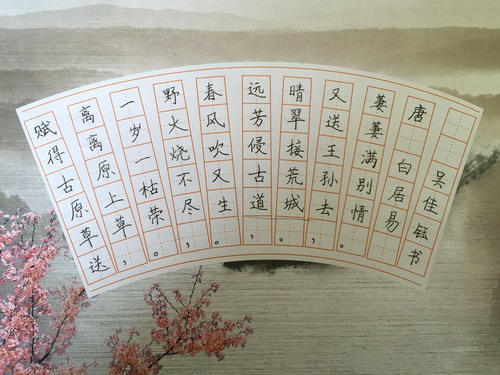 赋得古原草送
离离原上草，
一岁一枯荣。
野火烧不尽，
春风吹又生。
远芳侵古道，
晴翠接荒城。
又送王孙去，
萋萋满别情。
唐 白居易
吴佳钰书